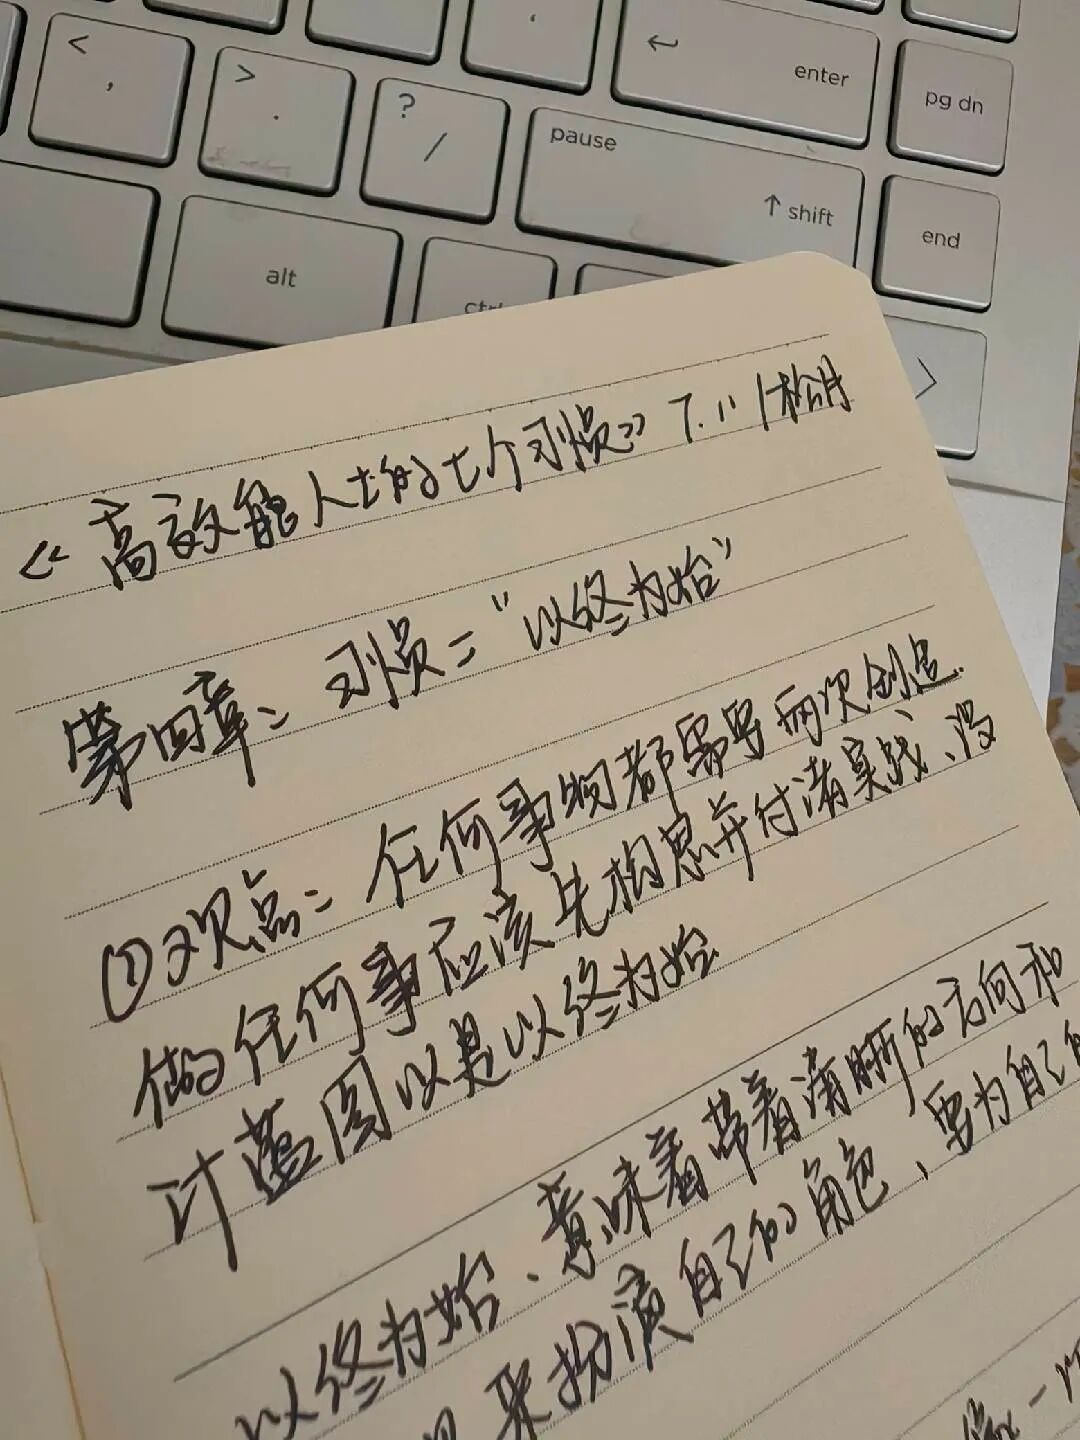 < ,
> .
? /
enter
pg dn
pause
↑ shift
end
alt
ctrl
《高效能人士的七个习惯》 7.11
第四章：习惯二“以终为始”
①观点：任何事物都需要两次创造.
做任何事应该先构思并付诸实践、设
计蓝图以是以终为始.
以终为始、意味着带着清晰的方向和
来扮演自己的角色、要为自己的
做一